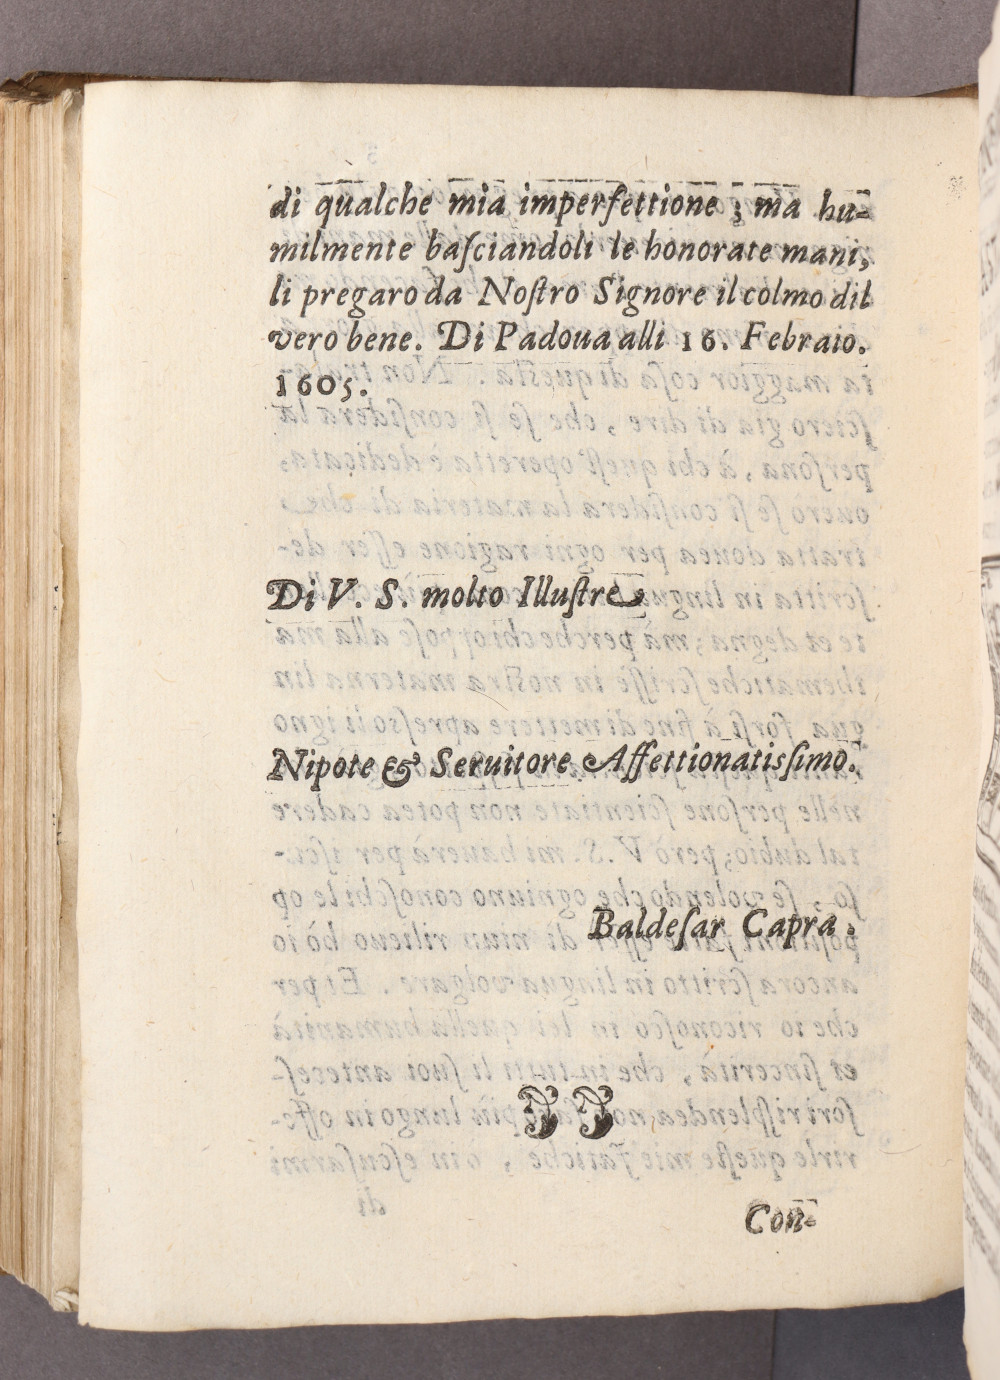 di qualche mia imperfettione ; ma hu-
milmente baſciandoli le honorate mani,
li pregaro da Noſtro Signore il colmo dil
vero bene. Di Padoua alli 16. Febraio.
1605.
Di V. S. molto Illuſtre,
Nipote & Seruitore Affettionatisſimo.
Baldeſar Capra.
Con-